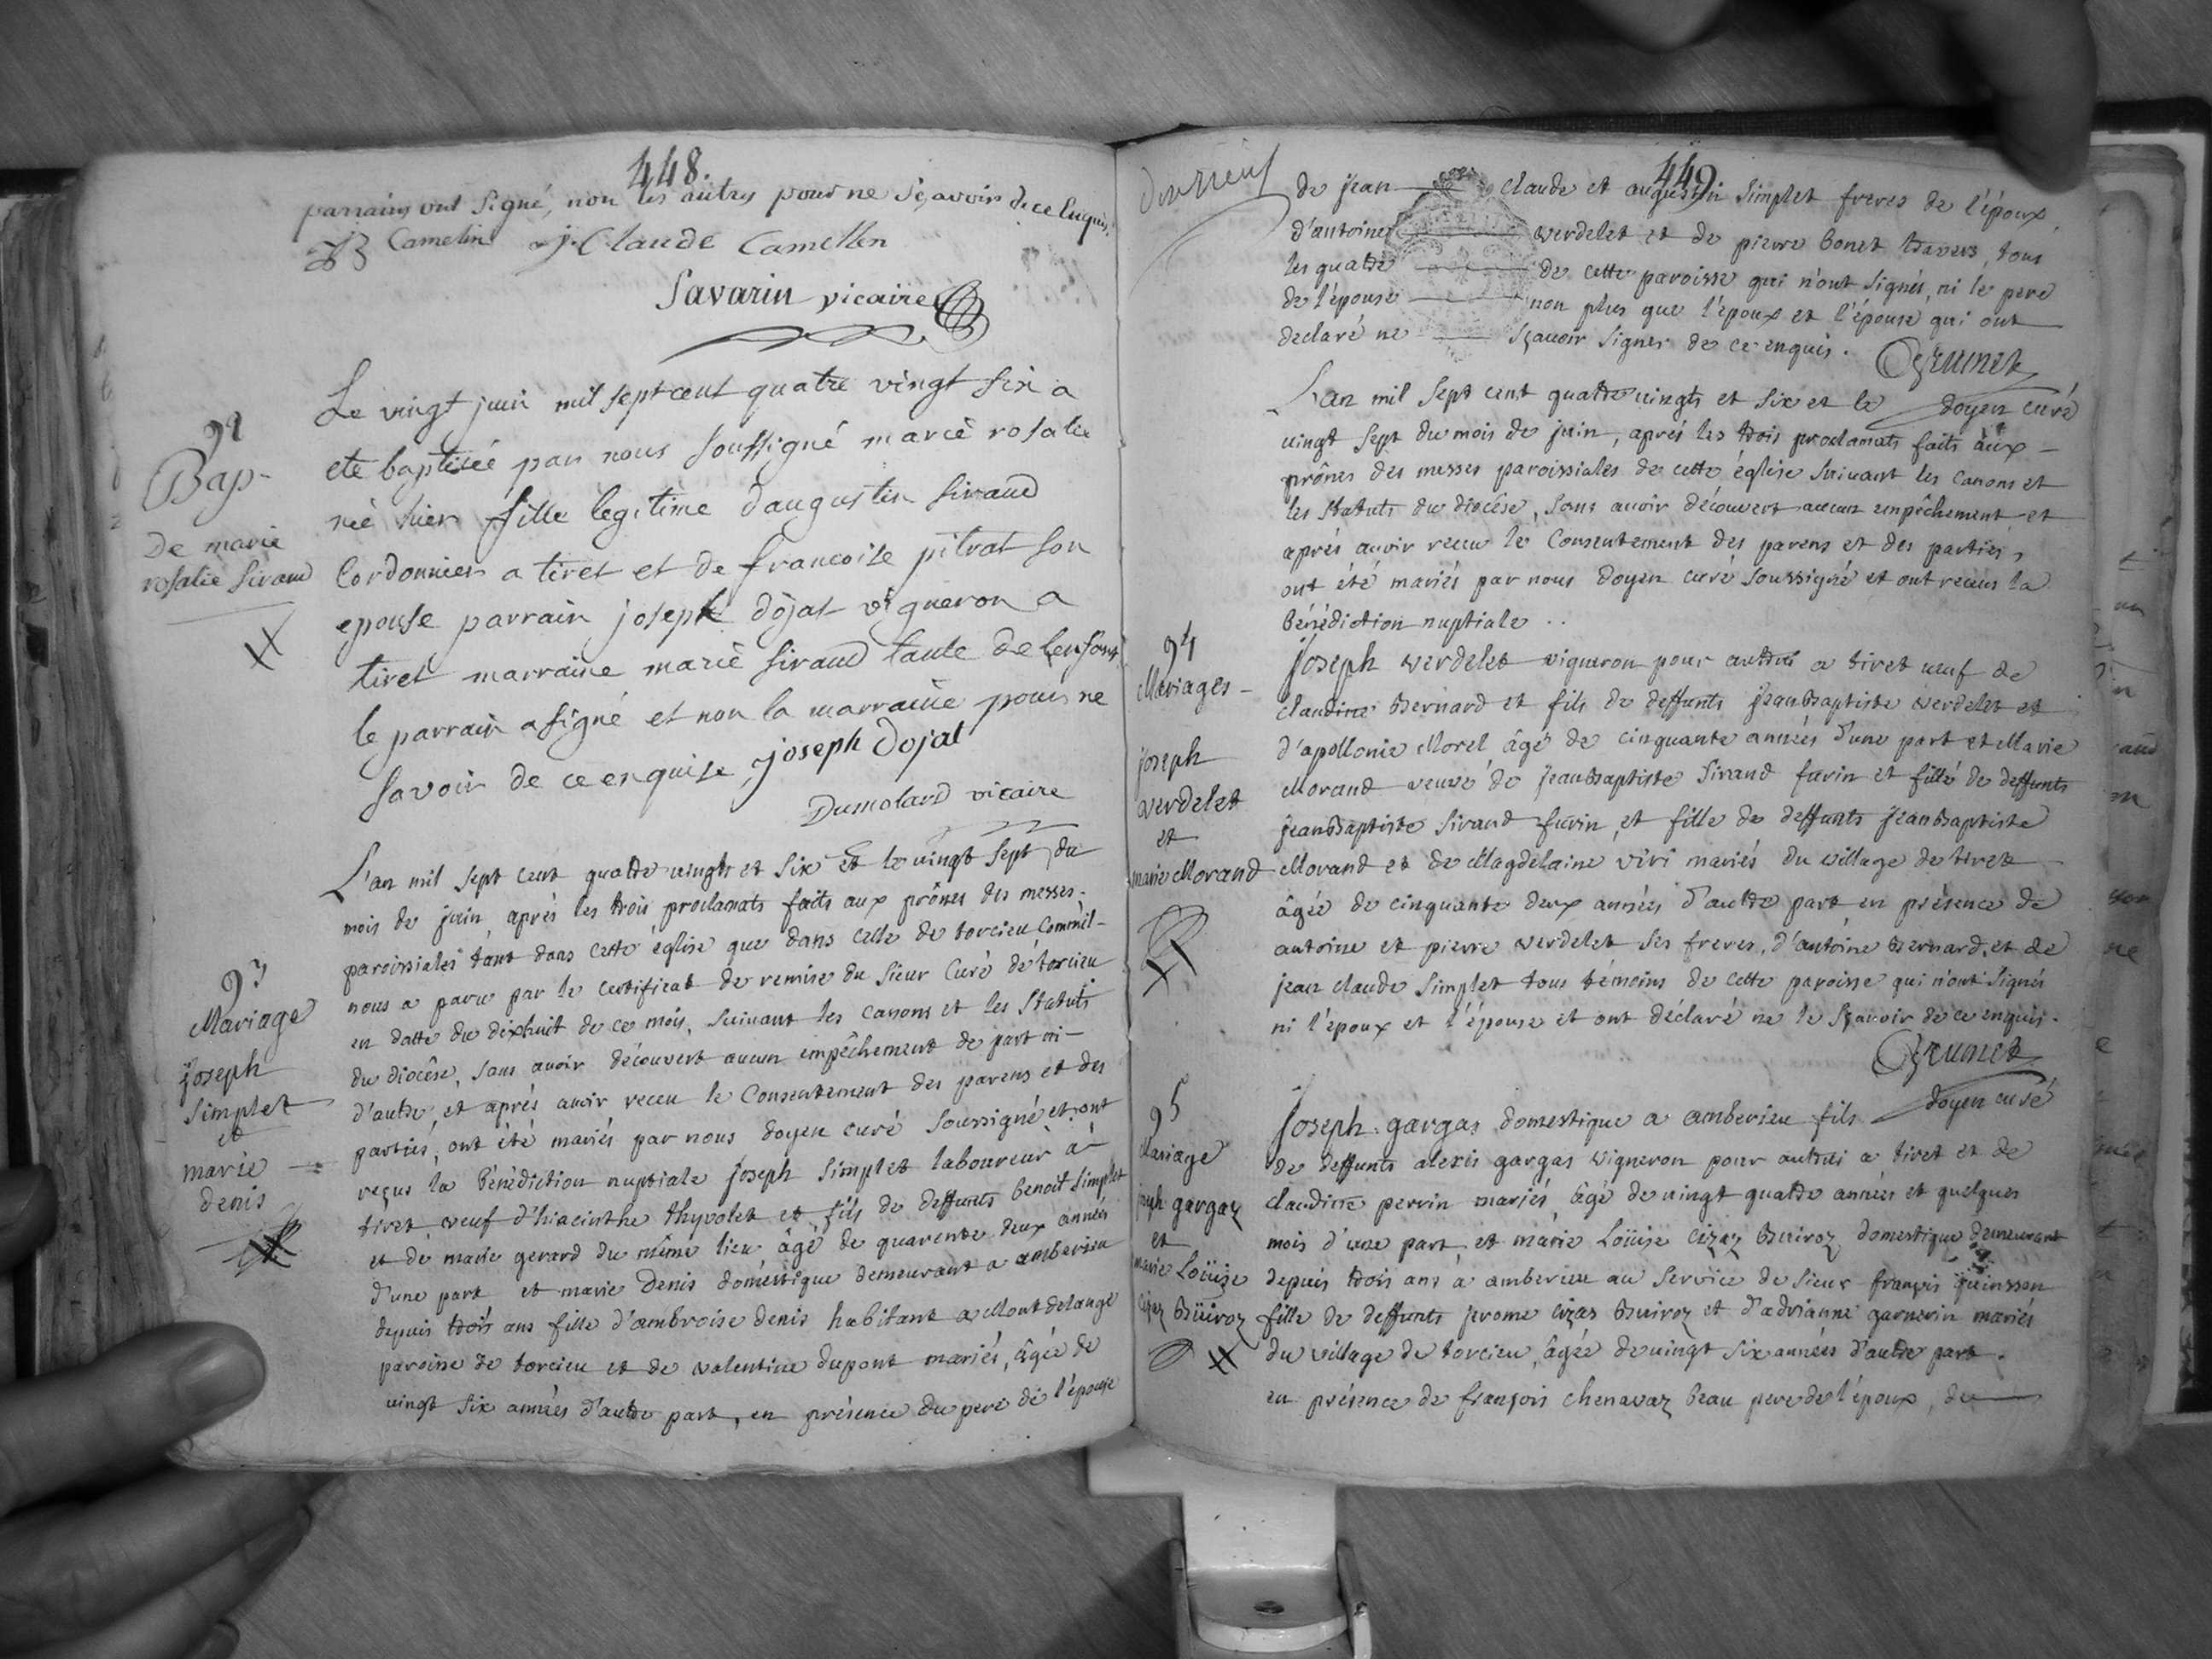 448.
parrains ont signé, non les autres pour ne sçavoir de ce enquis.
JB Camelin J. Claude Camellen
Savarin vicaire
92
Bap-
De marie
rosalie sirand
Le vingt juin mil sept cent quatre vingt six a
ete baptisée par nous soussigné marie rosalie
née hier fille legitime d'augustin sirand
Cordonnier a tiret et de francoise pitrat son
epouse parrain joseph dojat vigneron a
tiret marraine marie sirand tante de l'enfant
le parrain a signé et non la marraine pour ne
savoir de ce enquise, joseph Dojat
Dumolard vicaire
93
Mariage
joseph
simplet
et
marie
denis
L'an mil sept cent quatre vingts et six et le vingt sept du
mois de juin, après les trois proclamats faits aux prônes des messes-
paroissiales tant dans cette église que dans celle de torcieu comme il-
nous a paru par le certificat de remise du sieur Curé de torcieu
en datte du dixhuit de ce mois, suivant les canons et les statuts
du diocêse, sans avoir découvert aucun empêchement de part ni-
d'autre, et après avoir receu le consentement des parens et des
parties, ont été mariés par nous doyen curé soussigné et ont
reçus la bénédiction nuptiale joseph simplet laboureur à-
tiret, veuf d'hiacinthe thyvolet et fils de deffunts benoit simplet
et de marie gerard du même lieu âgé de quarente deux années
d'une part et marie denis domestique demeurant a amberieu
depuis trois ans fille d'ambroise denis habitant a Montdelange
paroisse de torcieu et de valentine dupont mariés, âgée de
vingt six années d'autre part, en présence du pere de l'épouse
449
de jean claude et augustin simplet freres de l'époux,
d'antoine verdelet et de pierre bonet travers, tous
les quatre de cette paroisse qui n'ont signés, ni le pere
de l'épouse non plus que l'époux et l'épouse qui ont
declaré ne sçavoir signer de ce enquis. Grumet
doyen curé
L'an mil sept cent quatre vingts et six et le
vingt sept du mois de juin, après les trois proclamats faits aux-
prônes des messes paroissiales de cette église suivant les canons et
les statuts du diocêse, sans avoir découvert aucun empêchement et
après avoir receu le consentement des parens et des parties,
ont été mariés par nous doyen curé soussigné et ont receus la
bénédiction nuptiale..
94
Mariages-
joseph
verdelet
et
marie Morand
joseph verdelet vigneron pour autrui a tiret veuf de
claudine Bernard et fils de deffunts jeanBaptiste verdelet et
d'apollonie Morel âgé de cinquante années d'une part et Marie
Morand veuve de jeanBaptiste sirand furin et fille de deffunts
jeanBaptiste sirand furin, et fille de deffunts jeanBaptiste
Morand et de Magdelaine viri mariés du village de tiret
âgée de cinquante deux années d'autre part en présence de
antoine et pierre verdelet ses freres, d'antoine Bernard, et de
jean claude simplet tous témoins de cette paroisse qui n'ont signés
ni l'epoux et l'épouse et ont déclaré ne le sçavoir de ce enquis.
Grumet
doyen curé
95
Mariage
joseph gargaz
et
marie Loüise
cizaz Büiroz
joseph gargas domestique a amberieu fils
de deffunts alexis gargas vigneron pour autrui a tiret et de
claudine perrin mariés, âgé de vingt quatre années et quelques
mois d'une part, et marie Loüise cizaz Buiroz domestique demeurant
depuis trois ans à amberieu au service de sieur françois quinsson
fille de deffunts jerome cizas Buiroz et d'adrianne garnerin mariés
du village de torcieu, âgée de vingt six années d'autre part.
en présence de françois chenavaz beau pere de l'époux, de